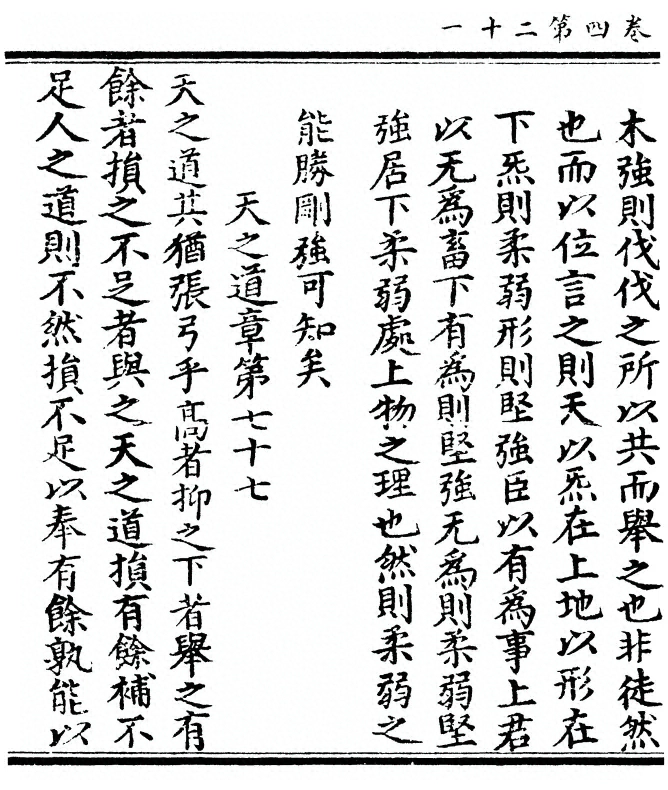 卷四第二十一
木強則伐伐之所以共而舉之也非徒然
也而以位言之則天以炁在上地以形在
下炁則柔弱形則堅強臣以有為事上君
以无為畜下有為則堅強无為則柔弱堅
強居下柔弱處上物之理也然則柔弱之
能勝剛強可知矣
天之道章第七十七
天之道其猶張弓乎高者抑之下者舉之有
餘者損之不足者與之天之道損有餘補不
足人之道則不然損不足以奉有餘孰能以